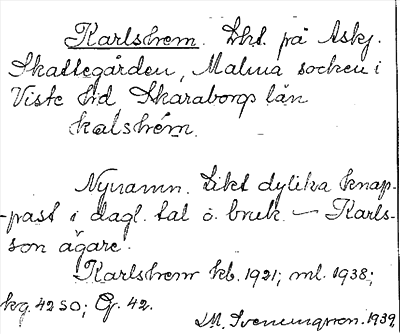 Karlshem. Lht. på Askj.
Skattegården, Malma socken i
Viste hd Skaraborgs län
kalshém.
Nynamn. Likt dylika knap-
-past i dagl. tal o. bruk. — Karls-
son ägare.
Karlshem kb. 1921; ml. 1938;
kg. 4250; G. 42.
I.M. Sveningson. 1939